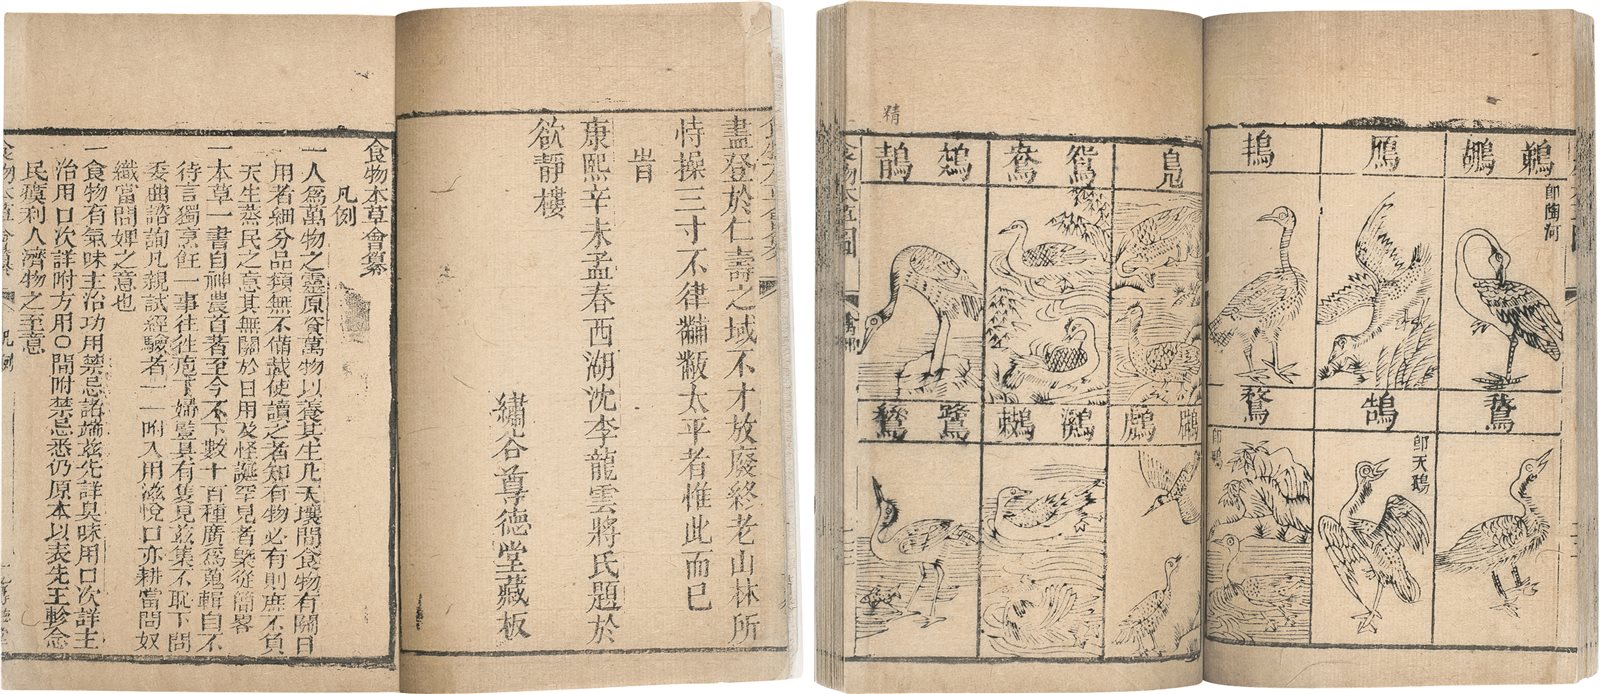 盡登於仁壽之域不才放廢終老山林所
恃操三寸不律黼黻太平者惟此而已
旹
康熙辛未孟春西湖沈李龍雲將氏題於
欲靜樓
繡谷尊德堂藏板
食物本草會纂
凡例
一人爲萬物之靈原資萬物以養其生凡天壤間食物有關日
用者細分品類無不備載使讀之者知有物必有則庶不負
天生蒸民之意其無關於日用及怪誕罕見者槩從簡畧
一本草一書自神農首著至今不下數十百種廣爲蒐輯自不
待言獨烹飪一事往往庖丁婦豎具有隻見玆集不恥下問
委曲諮詢凡親試經驗者一一附入用滋悅口亦耕當問奴
織當問婢之意也
一食物有氣味主治功用禁忌諸端玆先詳臭味用口次詳主
治用口次詳附方用〇間附禁忌悉仍原本以表先王軫念
民瘼利人濟物之至意
凡例
鵜鶘
即陶河
鴈
鴇
鵞
鵠
即天鵝
鶩
鳧
鴛鴦
鵁鶄
鸊鷉
鸂鶒
鷺鷥
精